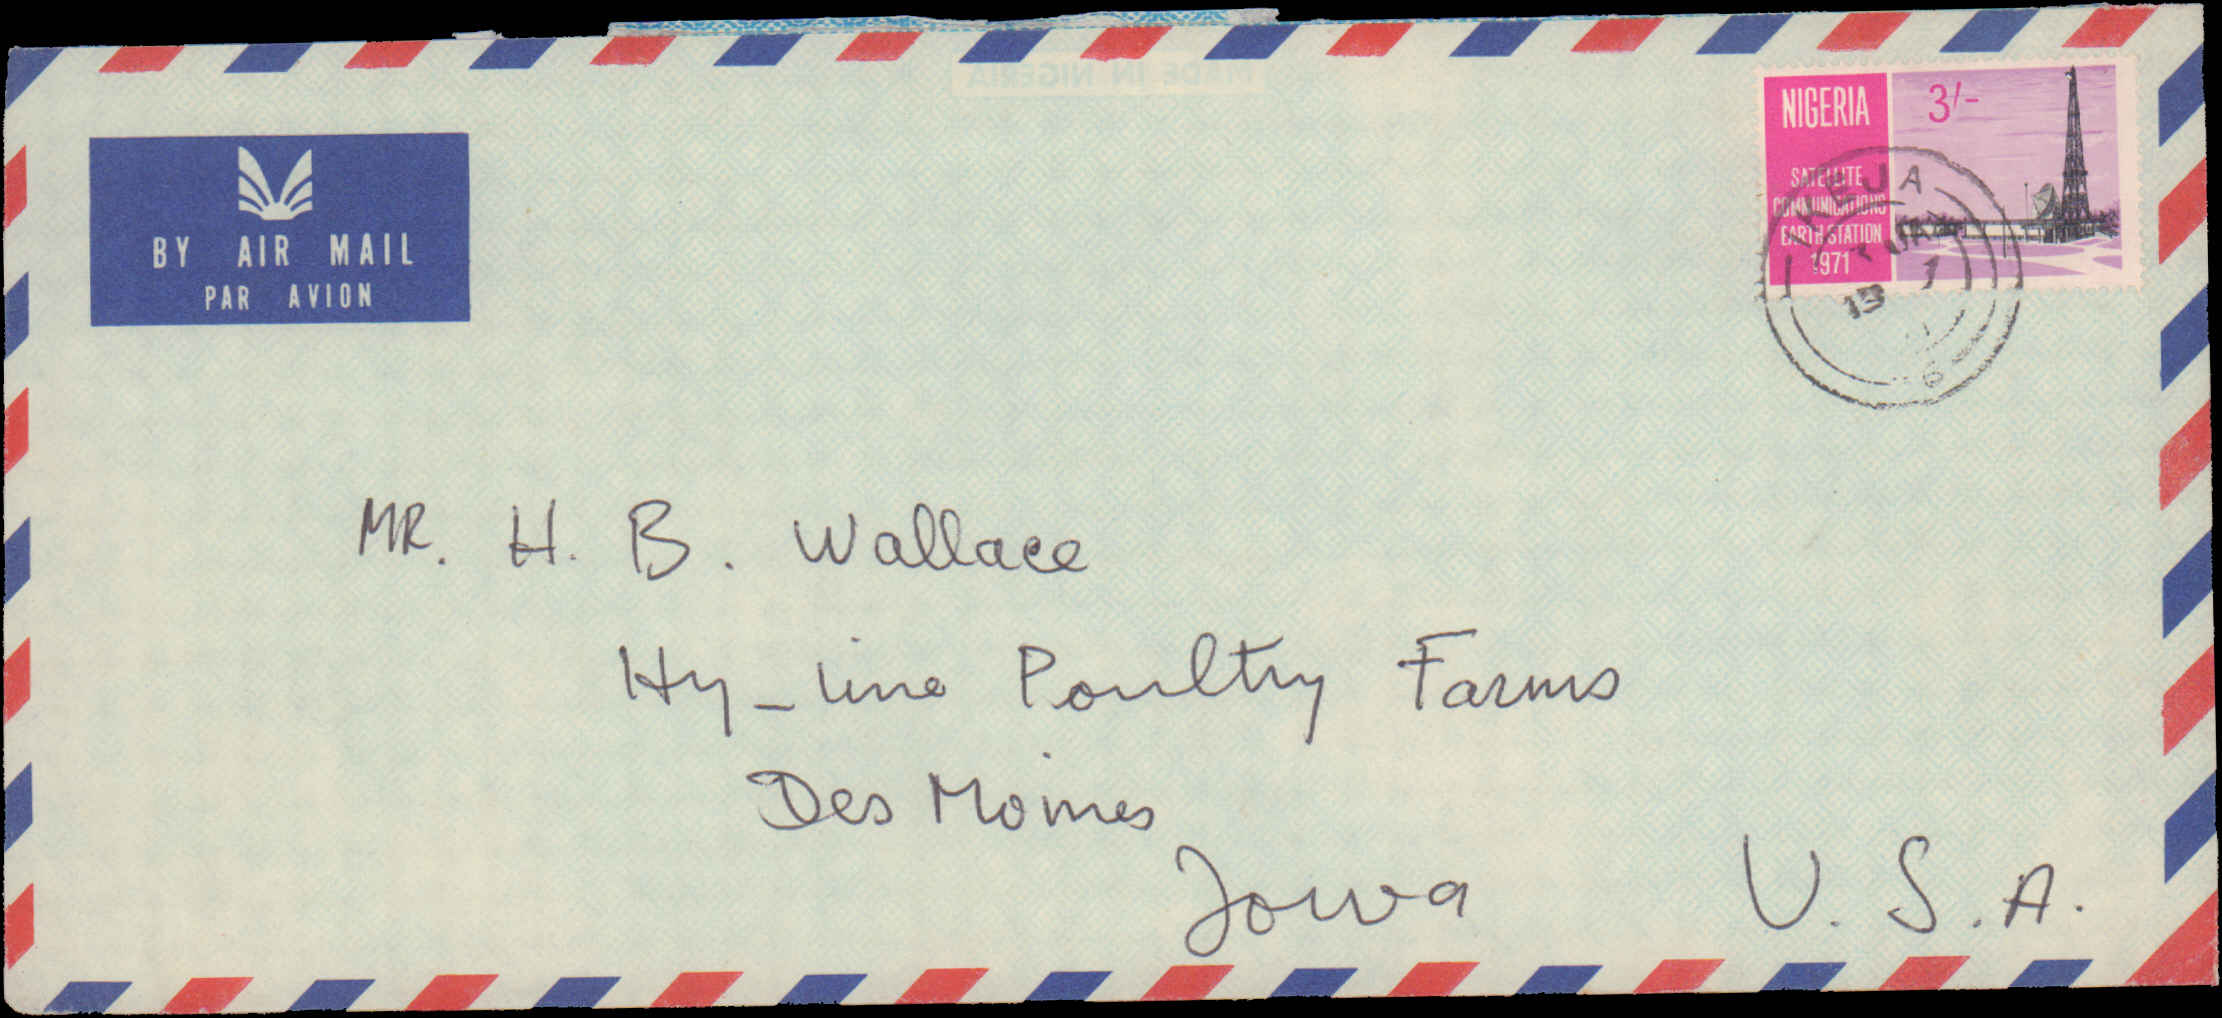 BY AIR MAIL
PAR AVION
MADE IN NIGERIA
NIGERIA
3/-
SATELLITE
COMMUNICATIONS
EARTH STATION
1971
IKEJA
JAN
19
MR. H. B. Wallace
Hy-line Poultry Farms
Des Moines
Iowa U. S. A.